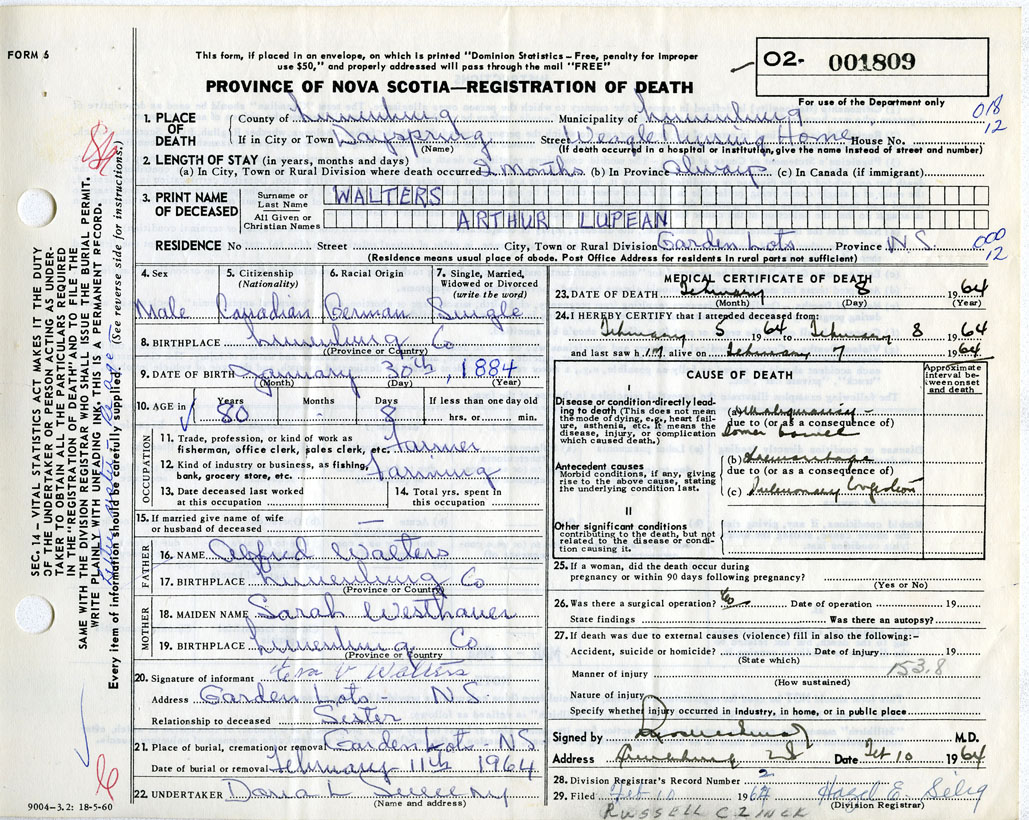 FORM 5
This form, if placed in an envelope, on which is printed "Dominion Statistics – Free, penalty for improper
use $50," and properly addressed will pass through the mail "FREE"
O2- 001809
For use of the Department only
PROVINCE OF NOVA SCOTIA—REGISTRATION OF DEATH
018
12
1. PLACE OF DEATH
County of Lunenburg Municipality of Lunenburg
If in City or Town Dayspring (Name) Street Nursing Home House No.
(If death occurred in a hospital or institution, give the name instead of street and number)
2. LENGTH OF STAY (in years, months and days)
(a) In City, Town or Rural Division where death occurred 2 Months (b) In Province Always (c) In Canada (if immigrant)
3. PRINT NAME OF DECEASED
Surname or Last Name WALTERS
All Given or Christian Names ARTHUR LUPEAN
RESIDENCE No Street City, Town or Rural Division Garden Lots Province N.S.
000
12
(Residence means usual place of abode. Post Office Address for residents in rural parts not sufficient)
4. Sex
Male
5. Citizenship (Nationality)
Canadian
6. Racial Origin
German
7. Single, Married, Widowed or Divorced (write the word)
Single
8. BIRTHPLACE Lunenburg Co
(Province or Country)
9. DATE OF BIRTH January 30th, 1884
(Month) (Day) (Year)
10. AGE in Years 80 Months - Days 8 If less than one day old hrs. or min.
OCCUPATION
11. Trade, profession, or kind of work as fisherman, office clerk, sales clerk, etc. Farmer
12. Kind of industry or business, as fishing, bank, grocery store, etc. Farming
13. Date deceased last worked at this occupation
14. Total yrs. spent in this occupation
15. If married give name of wife or husband of deceased —
FATHER
16. NAME Alfred Walters
17. BIRTHPLACE Lunenburg Co
(Province or Country)
MOTHER
18. MAIDEN NAME Sarah Westhaver
19. BIRTHPLACE Lunenburg Co
(Province or Country
20. Signature of informant Eva V Walters
Address Garden Lots - N.S.
Relationship to deceased Sister
21. Place of burial, cremation or removal Garden Lots - N.S.
Date of burial or removal February 11th 1964
22. UNDERTAKER
(Name and address)
9004–3.2: 18-5-60
MEDICAL CERTIFICATE OF DEATH
23. DATE OF DEATH February 8 1964
(Month) (Day) (Year)
24. I HEREBY CERTIFY that I attended deceased from:
February 5 1964 to February 8 1964
and last saw him alive on February 7 1964
CAUSE OF DEATH
Approximate interval between onset and death
I
Disease or condition directly leading to death (This does not mean the mode of dying, e.g., heart failure, asthenia, etc. It means the disease, injury, or complication which caused death.)
(a)
due to (or as a consequence of)
bowel
Antecedent causes
Morbid conditions, if any, giving rise to the above cause, stating the underlying condition last.
(b) Haemorrhage
due to (or as a consequence of)
(c) Pulmonary Congestion
II
Other significant conditions contributing to the death, but not related to the disease or condition causing it.
25. If a woman, did the death occur during pregnancy or within 90 days following pregnancy?
(Yes or No)
26. Was there a surgical operation? Date of operation 19
State findings Was there an autopsy?
27. If death was due to external causes (violence) fill in also the following:–
Accident, suicide or homicide? Date of injury 19
(State which)
Manner of injury 153.8
(How sustained)
Nature of injury
Specify whether injury occurred in industry, in home, or in public place
Signed by M.D.
Address Lunenburg Date Feb 10 1964
28. Division Registrar's Record Number 2
29. Filed Feb 10 1964 Hazel E. Selig
(Division Registrar)
RUSSELL C ZINCK
SEC. 14 – VITAL STATISTICS ACT MAKES IT THE DUTY
OF THE UNDERTAKER OR PERSON ACTING AS UNDER-
TAKER TO OBTAIN ALL THE PARTICULARS REQUIRED
IN THE "REGISTRATION OF DEATH" AND TO FILE THE
SAME WITH THE DIVISION REGISTRAR WHO SHALL ISSUE THE BURIAL PERMIT.
WRITE PLAINLY WITH UNFADING INK, THIS IS A PERMANENT RECORD.
Every item of information should be carefully supplied. (See reverse side for instructions.)